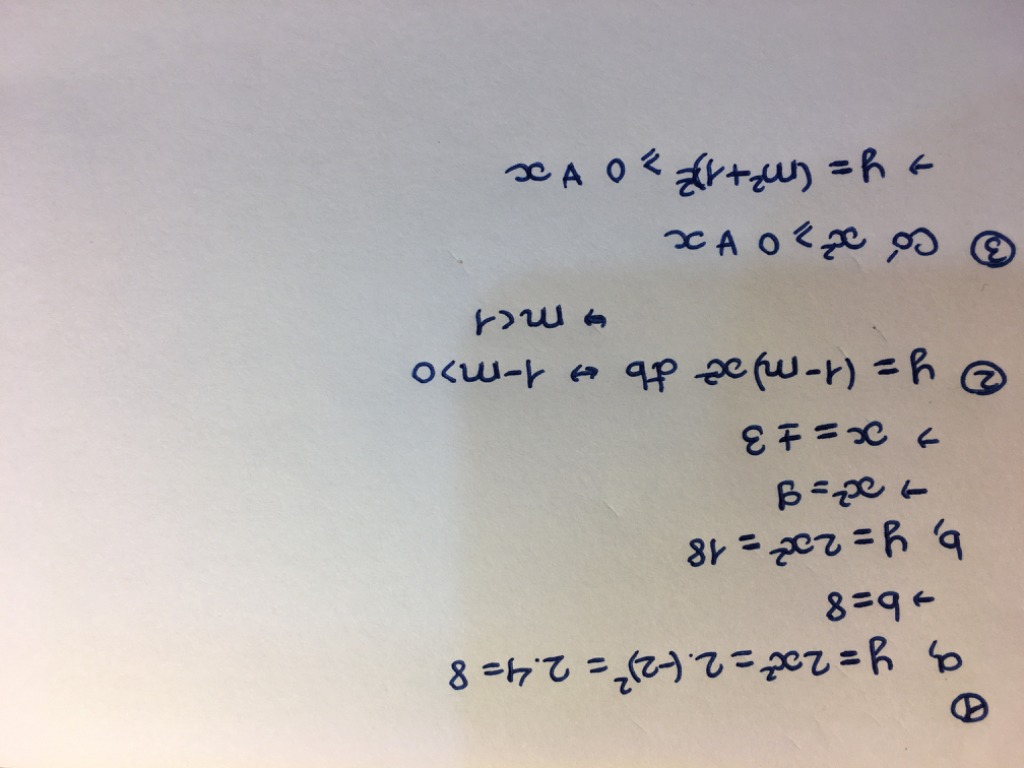 ①
a, y = 2x² = 2.(-2)² = 2.4 = 8
→ b = 8
b, y = 2x² = 18
→ x² = 9
→ x = ± 3
② y = (1-m)x² đb ⇔ 1-m>0
⇔ m<1
③ Có x² ⩾ 0 ∀ x
→ y = (m²+1)² ⩾ 0 ∀ x